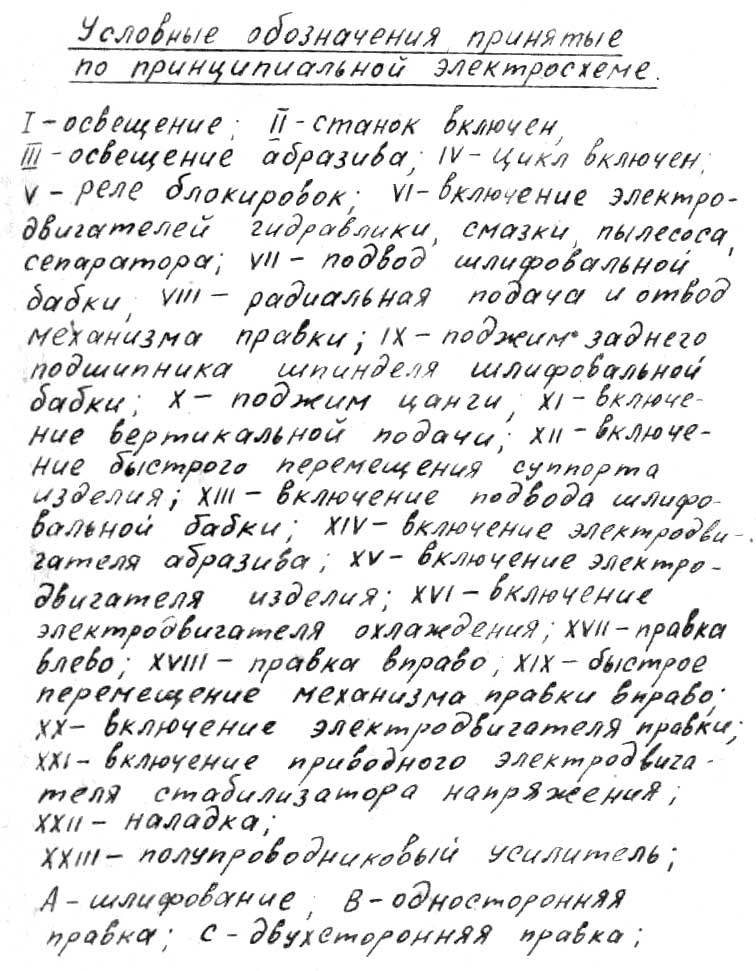 Условные обозначения, принятые
по принципиальной электросхеме.
I - освещение; II - станок включен,
III - освещение абразива; IV - цикл включен;
V - реле блокировок; VI - включение электро-
двигателей гидравлики, смазки, пылесоса,
сепаратора; VII - подвод шлифовальной
бабки, VIII - радиальная подача и отвод
механизма правки; IX - поджим заднего
подшипника шпинделя шлифовальной
бабки; X - поджим цанги, XI - включе-
ние вертикальной подачи; XII - включе-
ние быстрого перемещения суппорта
изделия; XIII - включение подвода шлифо-
вальной бабки; XIV - включение электродви-
гателя абразива; XV - включение электро-
двигателя изделия; XVI - включение
электродвигателя охлаждения; XVII - правка
влево; XVIII - правка вправо; XIX - быстрое
перемещение механизма правки вправо;
XX - включение электродвигателя правки;
XXI - включение приводного электродвига-
теля стабилизатора напряжения;
XXII - наладка;
XXIII - полупроводниковый усилитель;
А - шлифование, В - односторонняя
правка; С - двухсторонняя правка;